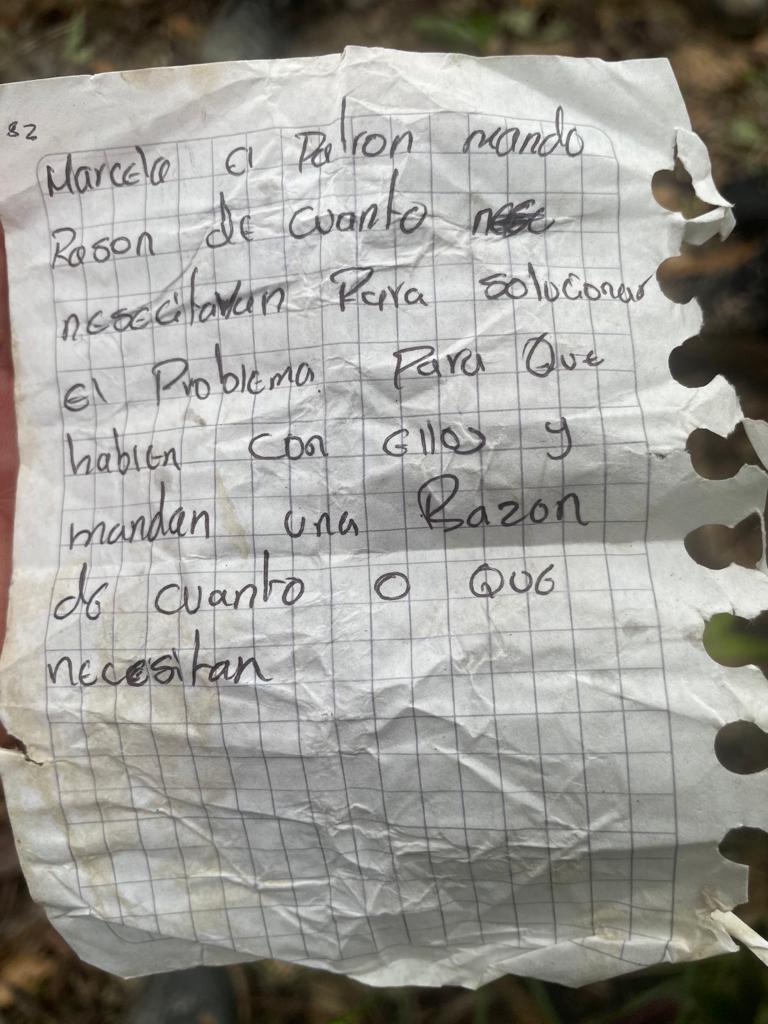 82
Marcela el Patron mando
Rason de cuanto
nesecitavan Para solucionar
el Problema Para Que
hablen con ellos y
mandan una Razon
de cuanto o que
necesitan